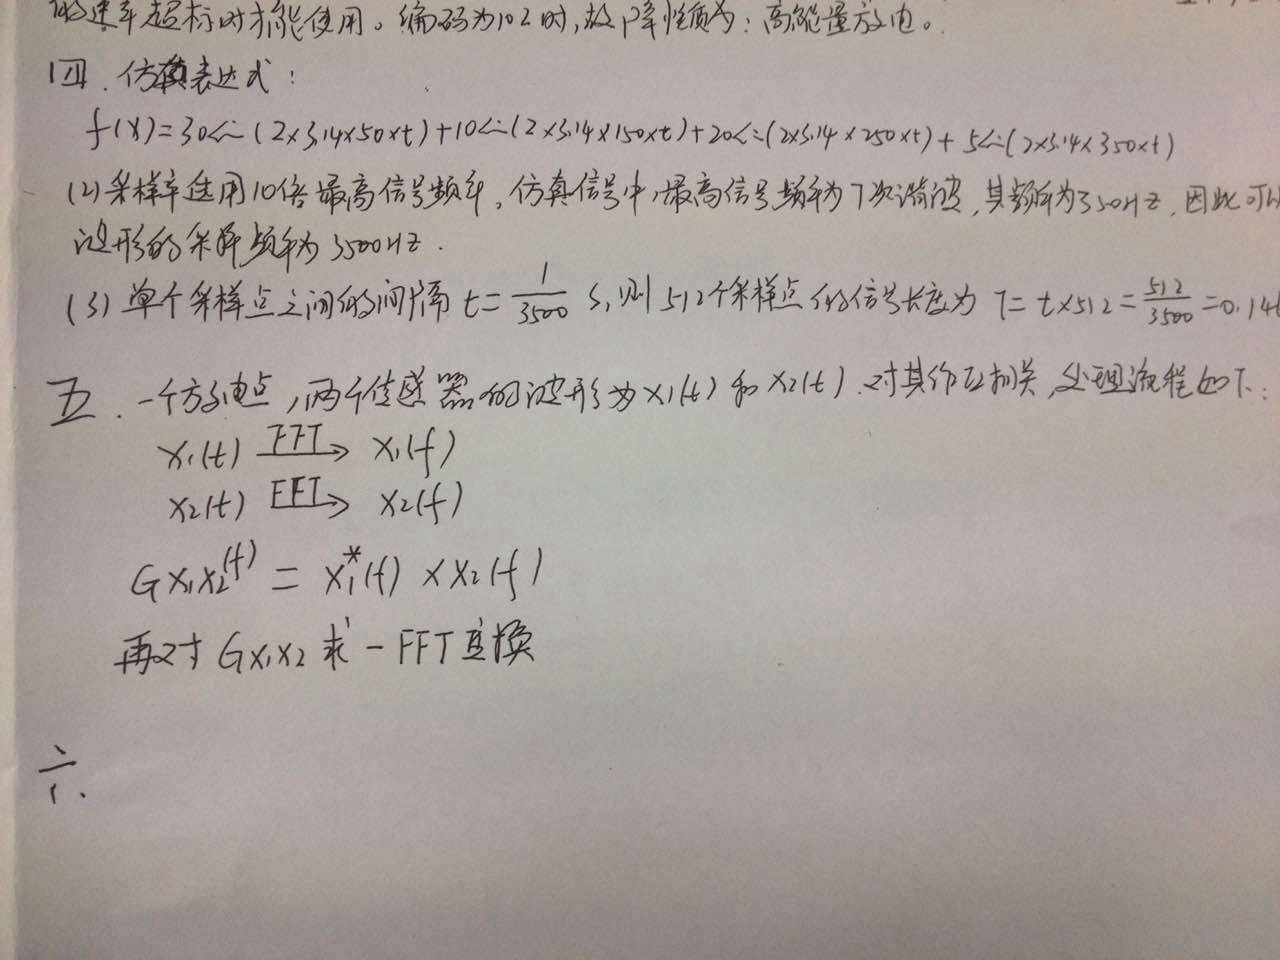 的速率超标时才能使用。编码为102时,故障性质为:高能量放电。
四.仿真表达式:
f(x)=30sin(2×3.14×50×t)+10sin(2×3.14×150×t)+20sin(2×3.14×250×t)+5sin(2×3.14×350×t)
(2)采样率选用10倍最高信号频率。仿真信号中,最高信号频率为7次谐波,其频率为350HZ,因此可以
波形的采样频率为3500HZ.
(3)单个采样点之间的间隔t=1/3500 s,则512个采样点的信号长度为T=t×512=512/3500=0.14
五.一个放电点,两个传感器的波形为x1(t)和x2(t).对其作互相关,处理流程如下:
x1(t) FFT→ x1(f)
x2(t) FFT→ x2(f)
Gx1x2(f) = x1*(f) × x2(f)
再对Gx1x2求-FFT变换
六.